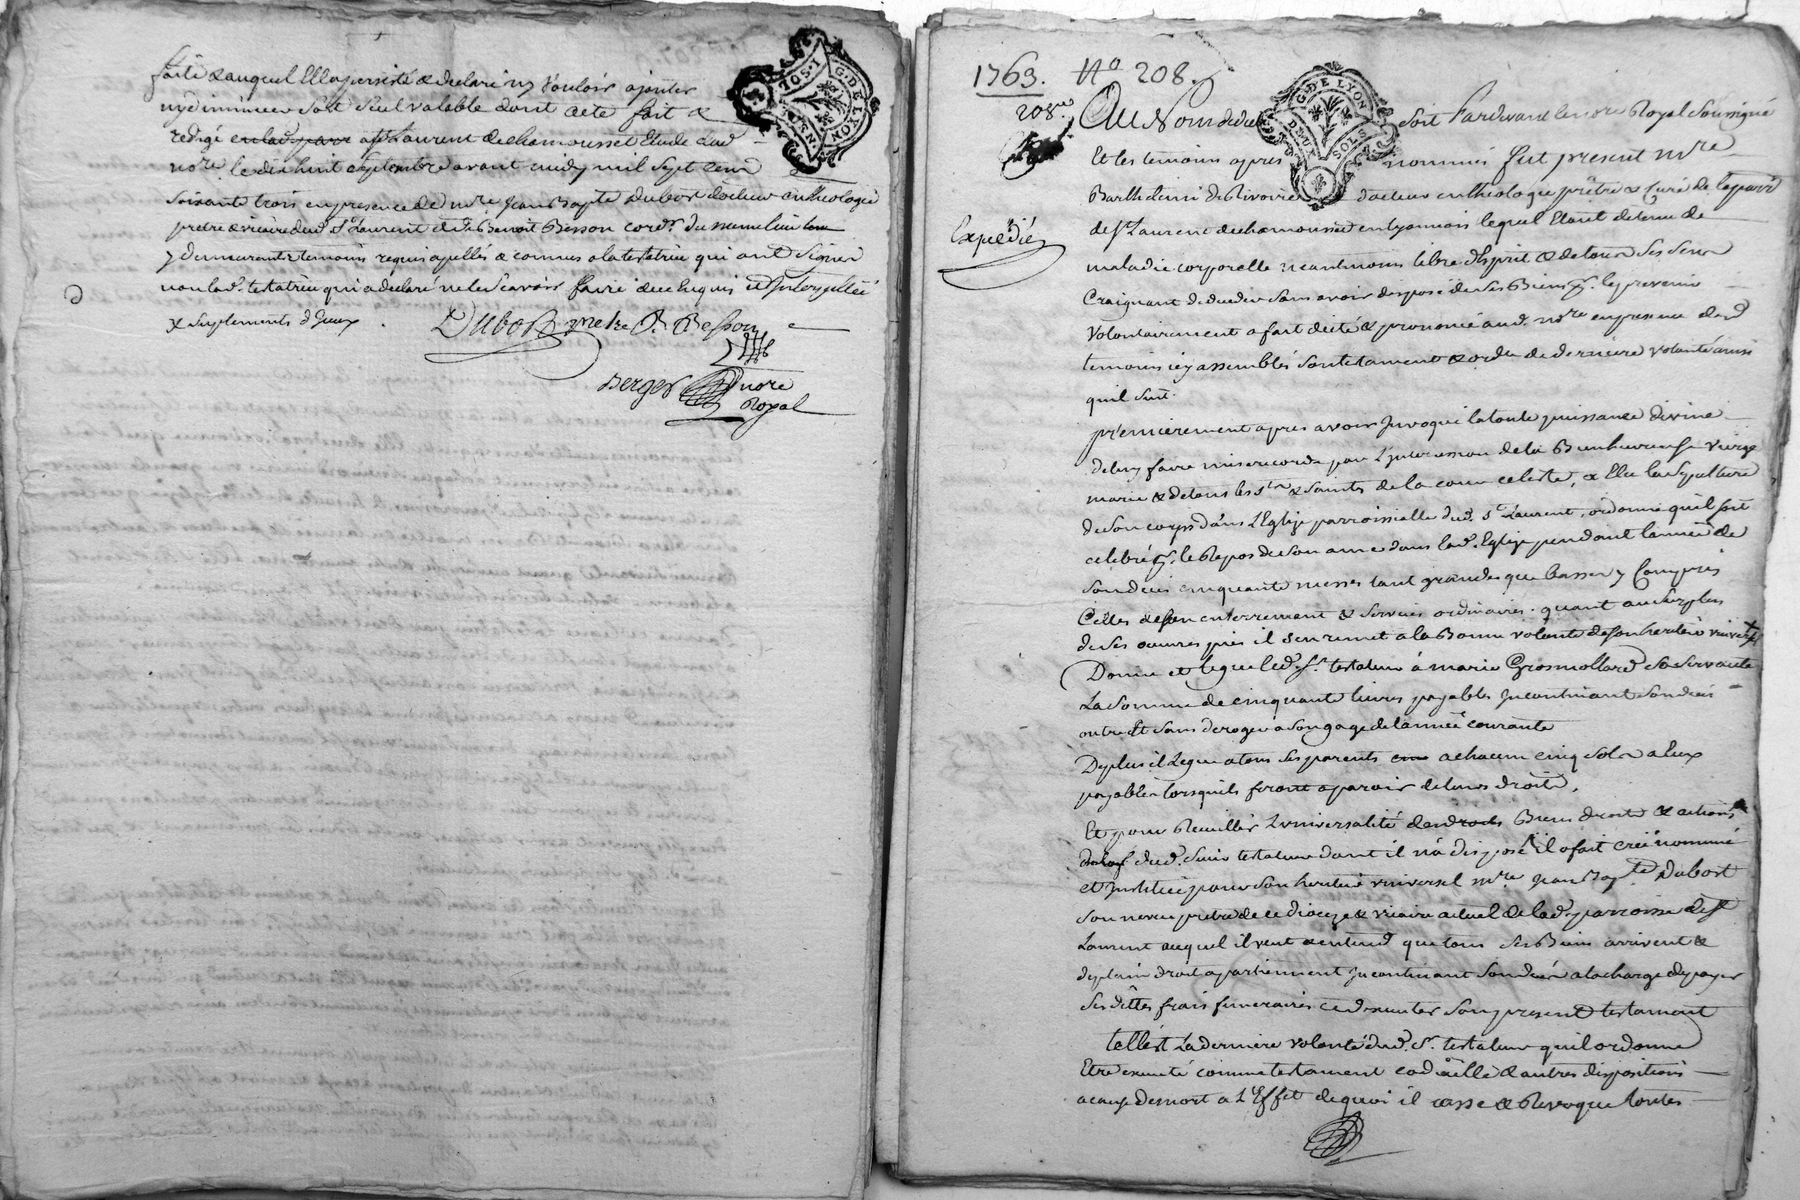 faite & auquel Elle a persisté & declaré ny vouloir ajouter
ny diminuer soit seul valable dont acte fait &
redigé en lad. parr. aud. St Laurent de chamousset Etude dud.
nore. le dix huit septembre avant midy mil sept cent
soixante trois en presence de mre. Jean Bapte Dubost docteur en theologie
pretre & vicaire dud. St Laurent & de Benoit Besson cordr. du meme lieu
y demeurants temoins requis apellés & connus a la testatrice qui ont signé
non lad. testatrice qui a declaré ne le scavoir faire de ce enquis et Interpellée
& seplements d'Iceux.
Dubost pretre B. Besson
Berger nore
Royal
I.SOL
G. DE LYON
1763. No 208.
208me
Expedié
G. DE LYON
DEUX SOLS
Au Nom de dieu soit Pardevant le nore Royal Soussigné
Et les temoins apres nommés fut present mre
Barthelemi de Rivoire docteur en theologie prêtre & Curé de la parr.
de St Laurent de chamousset en Lyonnois lequel Etant detenu de
maladie corporelle neantmoins libre d'Esprit & de tous ses sens
Craignant de deceder sans avoir disposé de ses Biens pr. le prevenir
volontairement a fait dicté & prononcé aud. nore en presence desd.
temoins icy assemblés son testament & ordre de derniere volonté ainsi
quil suit.
premierement apres avoir Invoqué la toute puissance divine
de luy faire misericorde par L'Intercession de la Bienheureuse vierge
marie & de tous les sts & saintes de la cour celeste, a Elu la sepulture
de son corps dans L'Eglize parroissialle dud. St Laurent, ordonne quil soit
celebré pr. le Repos de son ame dans lad. Eglize pendant l'année de
son deces cinquante messes tant grandes que basses y Compris
Celles de son enterrement & services ordinaires. quant au surplus
de ses oeuvres pies il s'en remet a la Bonne volonté de son heritier univer.
Donne et legue led. sr. testateur à marie Grosmollard sa servante
La somme de cinquante livres payables Incontinant son deces
outre Et sans deroger a son gage de l'année courante
De plus il Legue a tous ses parents a chacun cinq sols a Eux
payables lorsquils feront aparoir de leurs droits.
Et pour Recuillir L'universalité des droits Biens droits & actions
dud. sieur testateur dont il n'a disposé il a fait créé nommé
et Institué pour son heritier universel mre. Jean Bapte Dubost
son neveu pretre de ce dioceze & vicaire actuel de lad. parroisse de St
Laurent auquel il veut & entend que tous ses Biens arrivent &
de plain droit apartiennent Incontinant son deces a la charge de payer
ses dettes frais funeraires et d'executer son present testament
telle est La derniere volonté dud. sr. testateur quil ordonne
Etre executé comme testament codicille & autres dispositions
a cause de mort a L'Effet de quoi il casse & Revoque toutes